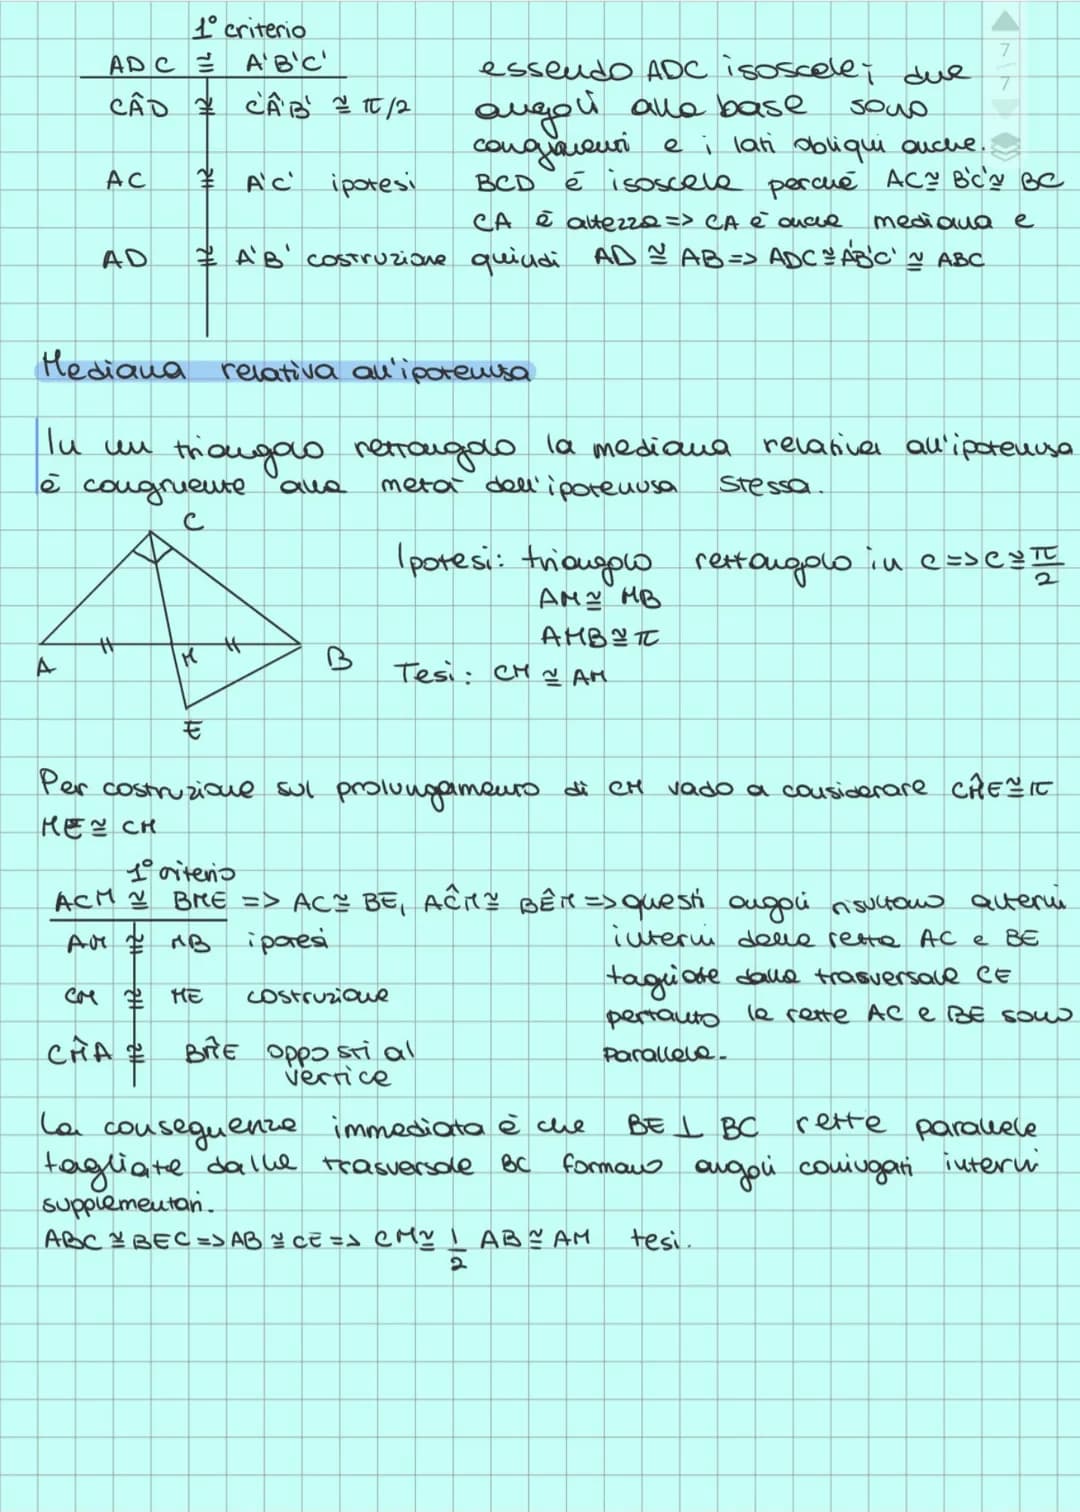 1° criterio
ADC ≅ A'B'C'
CÂD ≅ C'Â'B' ≅ π/2
AC ≅ A'C' ipotesi
AD ≅ A'B' costruzione
essendo ADC isoscele i due
angoli alla base sono
congruenti e i lati obliqui anche.
BCD è isoscele perchè AC≅ B'C'≅ BC
CA è altezza => CA è anche mediana e
quindi AD ≅ AB => ADC ≅ A'B'C' ≅ ABC
7
7
Mediana relativa all'ipotenusa
In un triangolo rettangolo la mediana relativa all'ipotenusa
è congruente alla metà dell'ipotenusa stessa.
C
A
M
B
E
Ipotesi: triangolo rettangolo in C=>C≅π/2
AM≅ MB
AMB≅π
Tesi: CM ≅ AM
Per costruzione sul prolungamento di CM vado a considerare CM̂E≅π
ME≅ CM
1° criterio
ACM ≅ BME => AC≅ BE, AĈM≅ BÊM => questi angoli risultano alterni
interni delle rette AC e BE
tagliate dalla trasversale CE
pertanto le rette AC e BE sono
parallele.
AM ≅ MB ipotesi
CM ≅ ME costruzione
CM̂A ≅ BM̂E opposti al
vertice
La conseguenza immediata è che BE ⊥ BC rette parallele
tagliate dalla trasversale BC formano angoli coniugati interni
supplementari.
ABC ≅ BEC => AB ≅ CE => CM≅ 1/2 AB ≅ AM tesi.